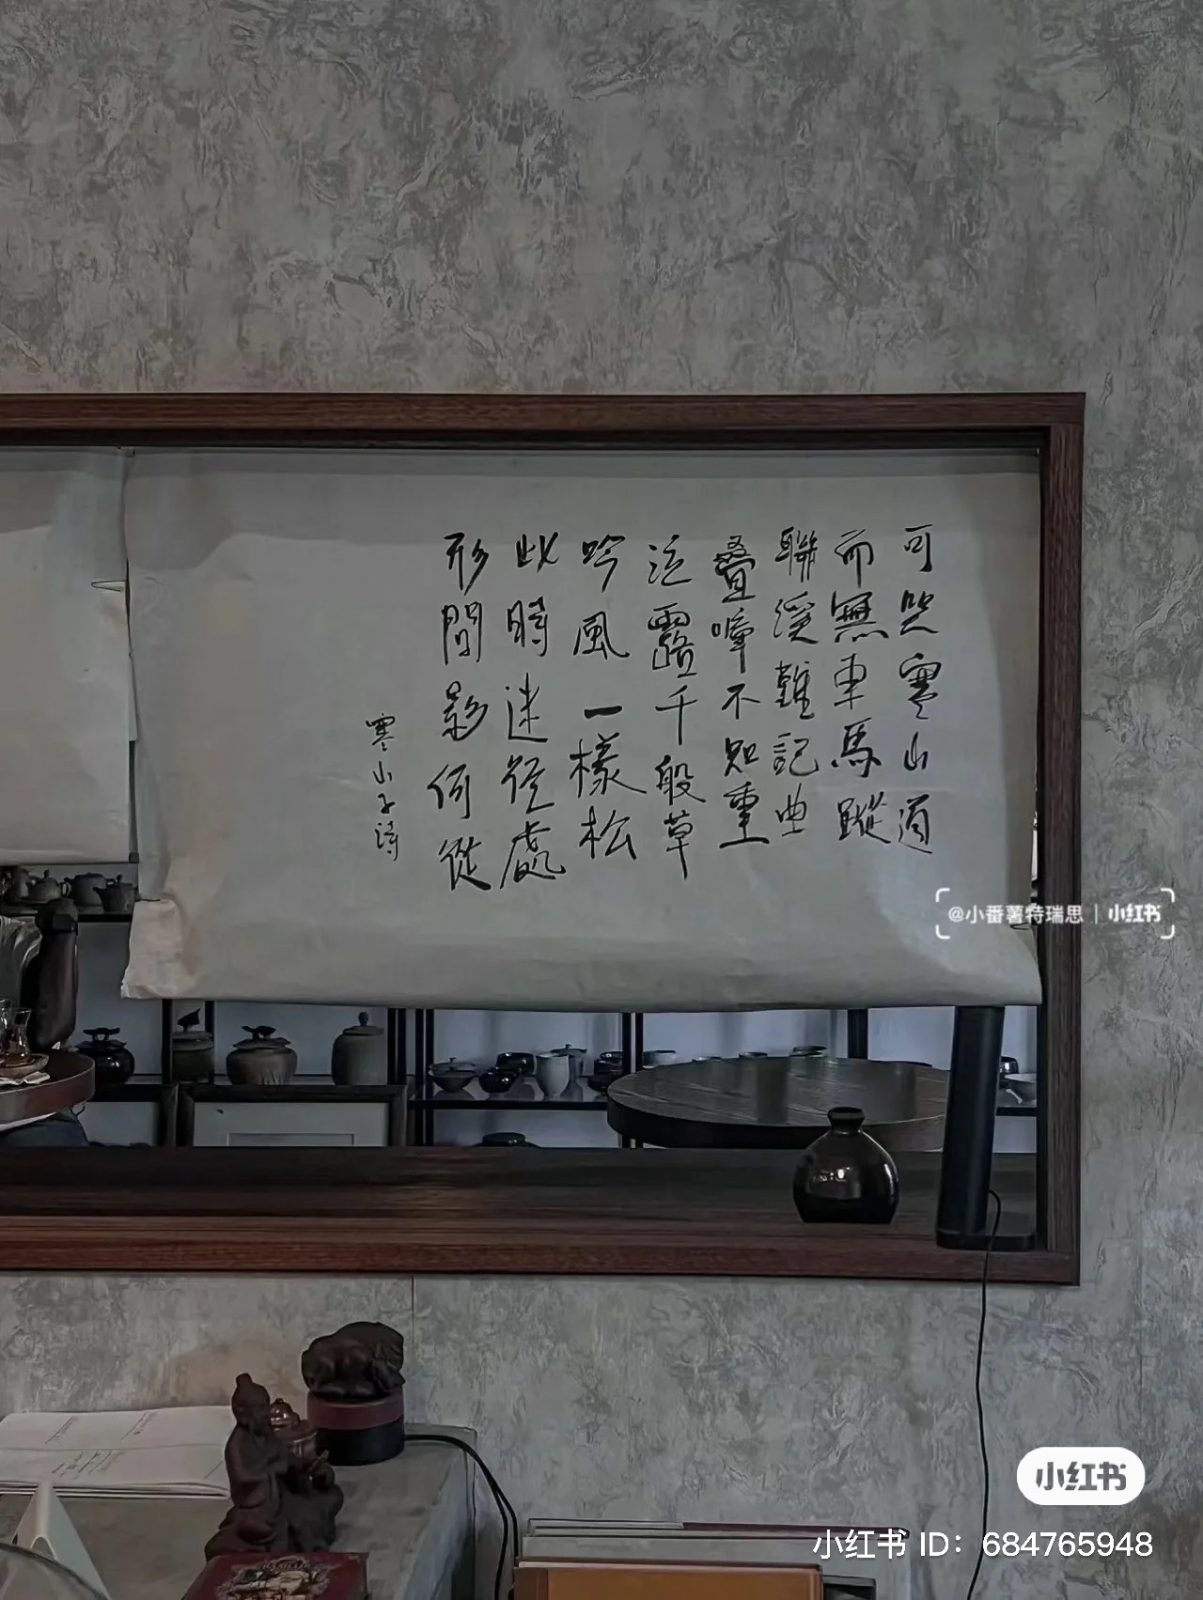 可咲寒山道
而無車馬蹤
聯溪難記曲
疊嶂不知重
泣露千般草
吟風一樣松
此時迷徑處
形間影何從
寒山子詩
@小番薯特瑞思 | 小红书
小红书
小红书 ID：684765948